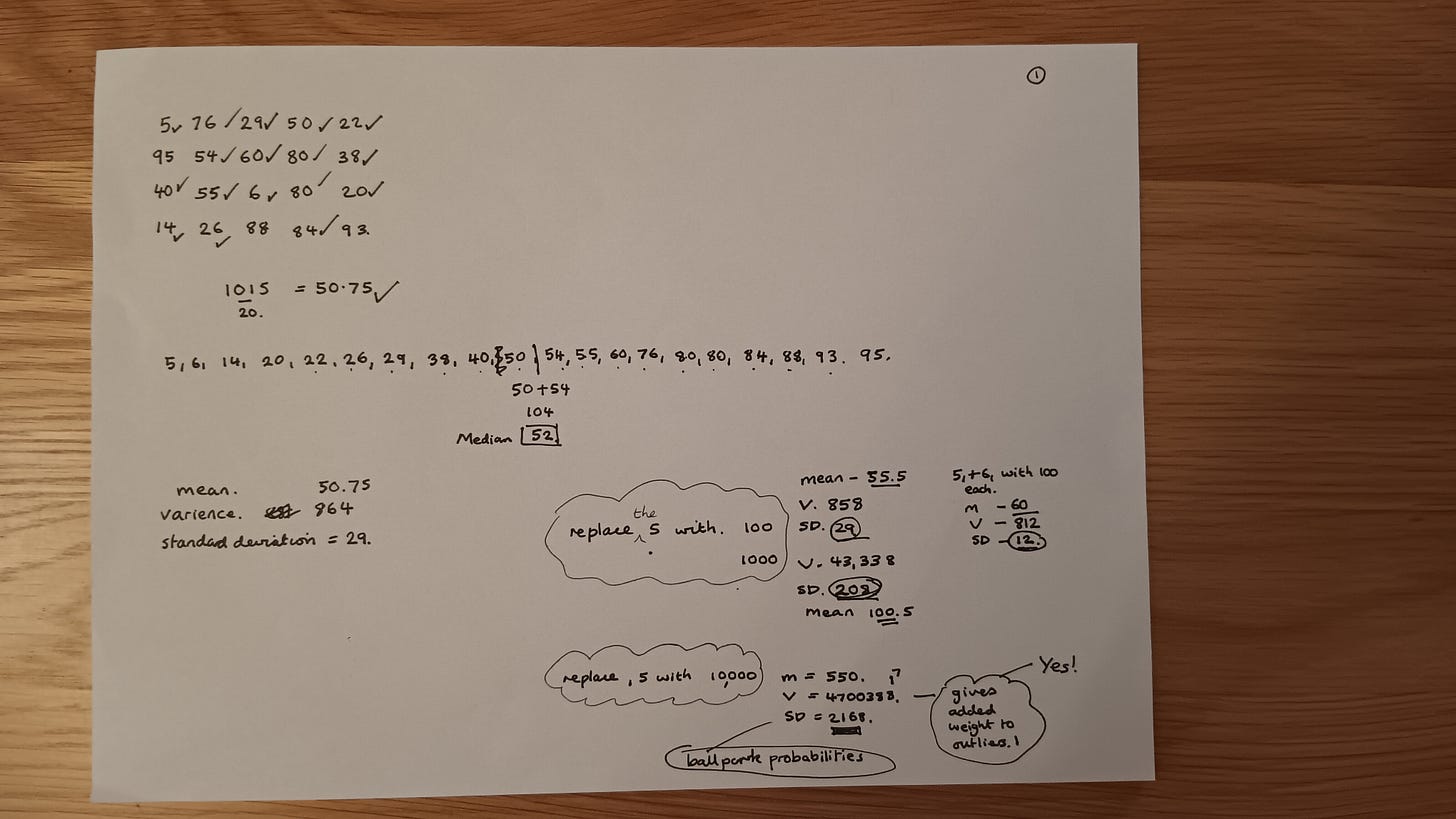 ①
5✓ 76 ✓ 29✓ 50 ✓ 22✓
95 54✓ 60✓ 80✓ 38✓
40✓ 55✓ 6✓ 80✓ 20✓
14✓ 26✓ 88 84✓ 93.
1015 = 50.75✓
20.
5, 6, 14, 20, 22, 26, 29, 38, 40, 50 | 54, 55, 60, 76, 80, 80, 84, 88, 93. 95.
50+54
104
Median 52
mean. 50.75
varience. 864
standad deviation = 29.
the
replace ^ 5 with. 100
1000
mean - 55.5
V. 858
SD. 29
V. 43,338
SD. 208
mean 100.5
5,+6, with 100
each.
m - 60
V - 812
SD - 12.
replace, 5 with 10,000
m = 550.
V = 4700388.
SD = 2168.
gives
added
weight to
outlies.!
Yes!
probabilities